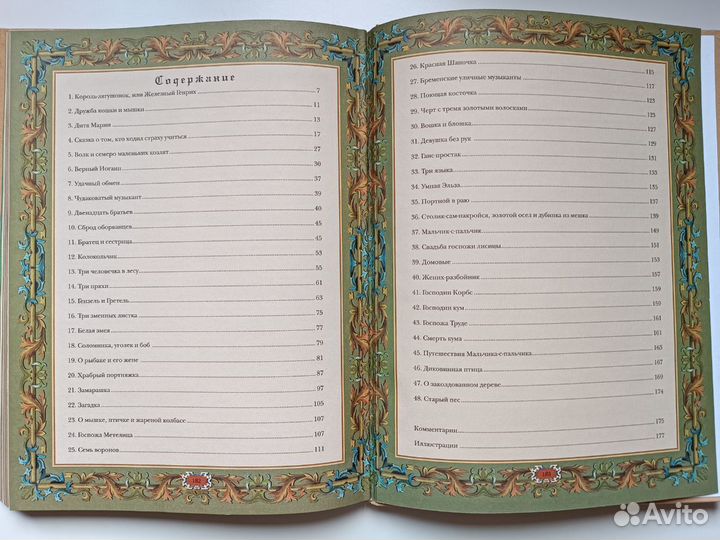 Содержание
1. Король-лягушонок, или Железный Генрих 7
2. Дружба кошки и мышки 11
3. Дитя Марии 13
4. Сказка о том, кто ходил страху учиться 17
5. Волк и семеро маленьких козлят 27
6. Верный Иоганн 30
7. Удачный обмен 37
8. Чудаковатый музыкант 39
9. Двенадцать братьев 40
10. Сброд оборванцев 45
11. Братец и сестрица 45
12. Колокольчик 53
13. Три человечка в лесу 55
14. Три пряхи 61
15. Гензель и Гретель 63
16. Три змеиных листка 75
17. Белая змея 77
18. Соломинка, уголек и боб 79
19. О рыбаке и его жене 81
20. Храбрый портняжка 87
21. Замарашка 97
22. Загадка 105
23. О мышке, птичке и жареной колбасе 107
24. Госпожа Метелица 107
25. Семь воронов 111
182
26. Красная Шапочка 115
27. Бременские уличные музыканты 117
28. Поющая косточка 121
29. Черт с тремя золотыми волосками 123
30. Вошка и блошка 127
31. Девушка без рук 129
32. Ганс-простак 131
33. Три языка 133
34. Умная Эльза 135
35. Портной в раю 137
36. Столик-сам-накройся, золотой осел и дубинка из мешка 139
37. Мальчик-с-пальчик 149
38. Свадьба госпожи лисицы 151
39. Домовые 153
40. Жених-разбойник 157
41. Господин Корбс 159
42. Господин кум 159
43. Госпожа Труде 161
44. Смерть кума 161
45. Путешествия Мальчика-с-пальчика 165
46. Диковинная птица 167
47. О заколдованном дереве 169
48. Старый пес 174
Комментарии 175
Иллюстрации 177
183
Avito